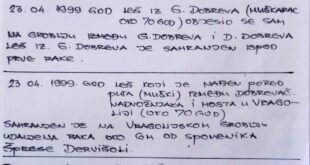 23.04.1999 GOD LEŠ IZ G. DOBREVA (MUŠKARAC
OKO 70 GOD) OBJESIO SE SAM
NA GROBLJU IZMEĐU G. DOBREVA I D. DOBREVA
LEŠ IZ G. DOBREVA JE SAHRANJEN ISPOD
PRVE RAKE.
23 04. 1999. GOD LEŠ KOJI JE NAĐEN PORED
PUTA (MUŠKI) IZMEĐU DOBREVAČ
NADVOŽNJAKA I MOSTA U VRAGO-
LIJI (OKO 70 GOD)
SAHRANJEN JE NA VRAGOLIJSKOM GROBLJU
UDALJENA RAKA OKO 6M OD SPOMENIKA
ŠPRESE DERVIŠOLI.